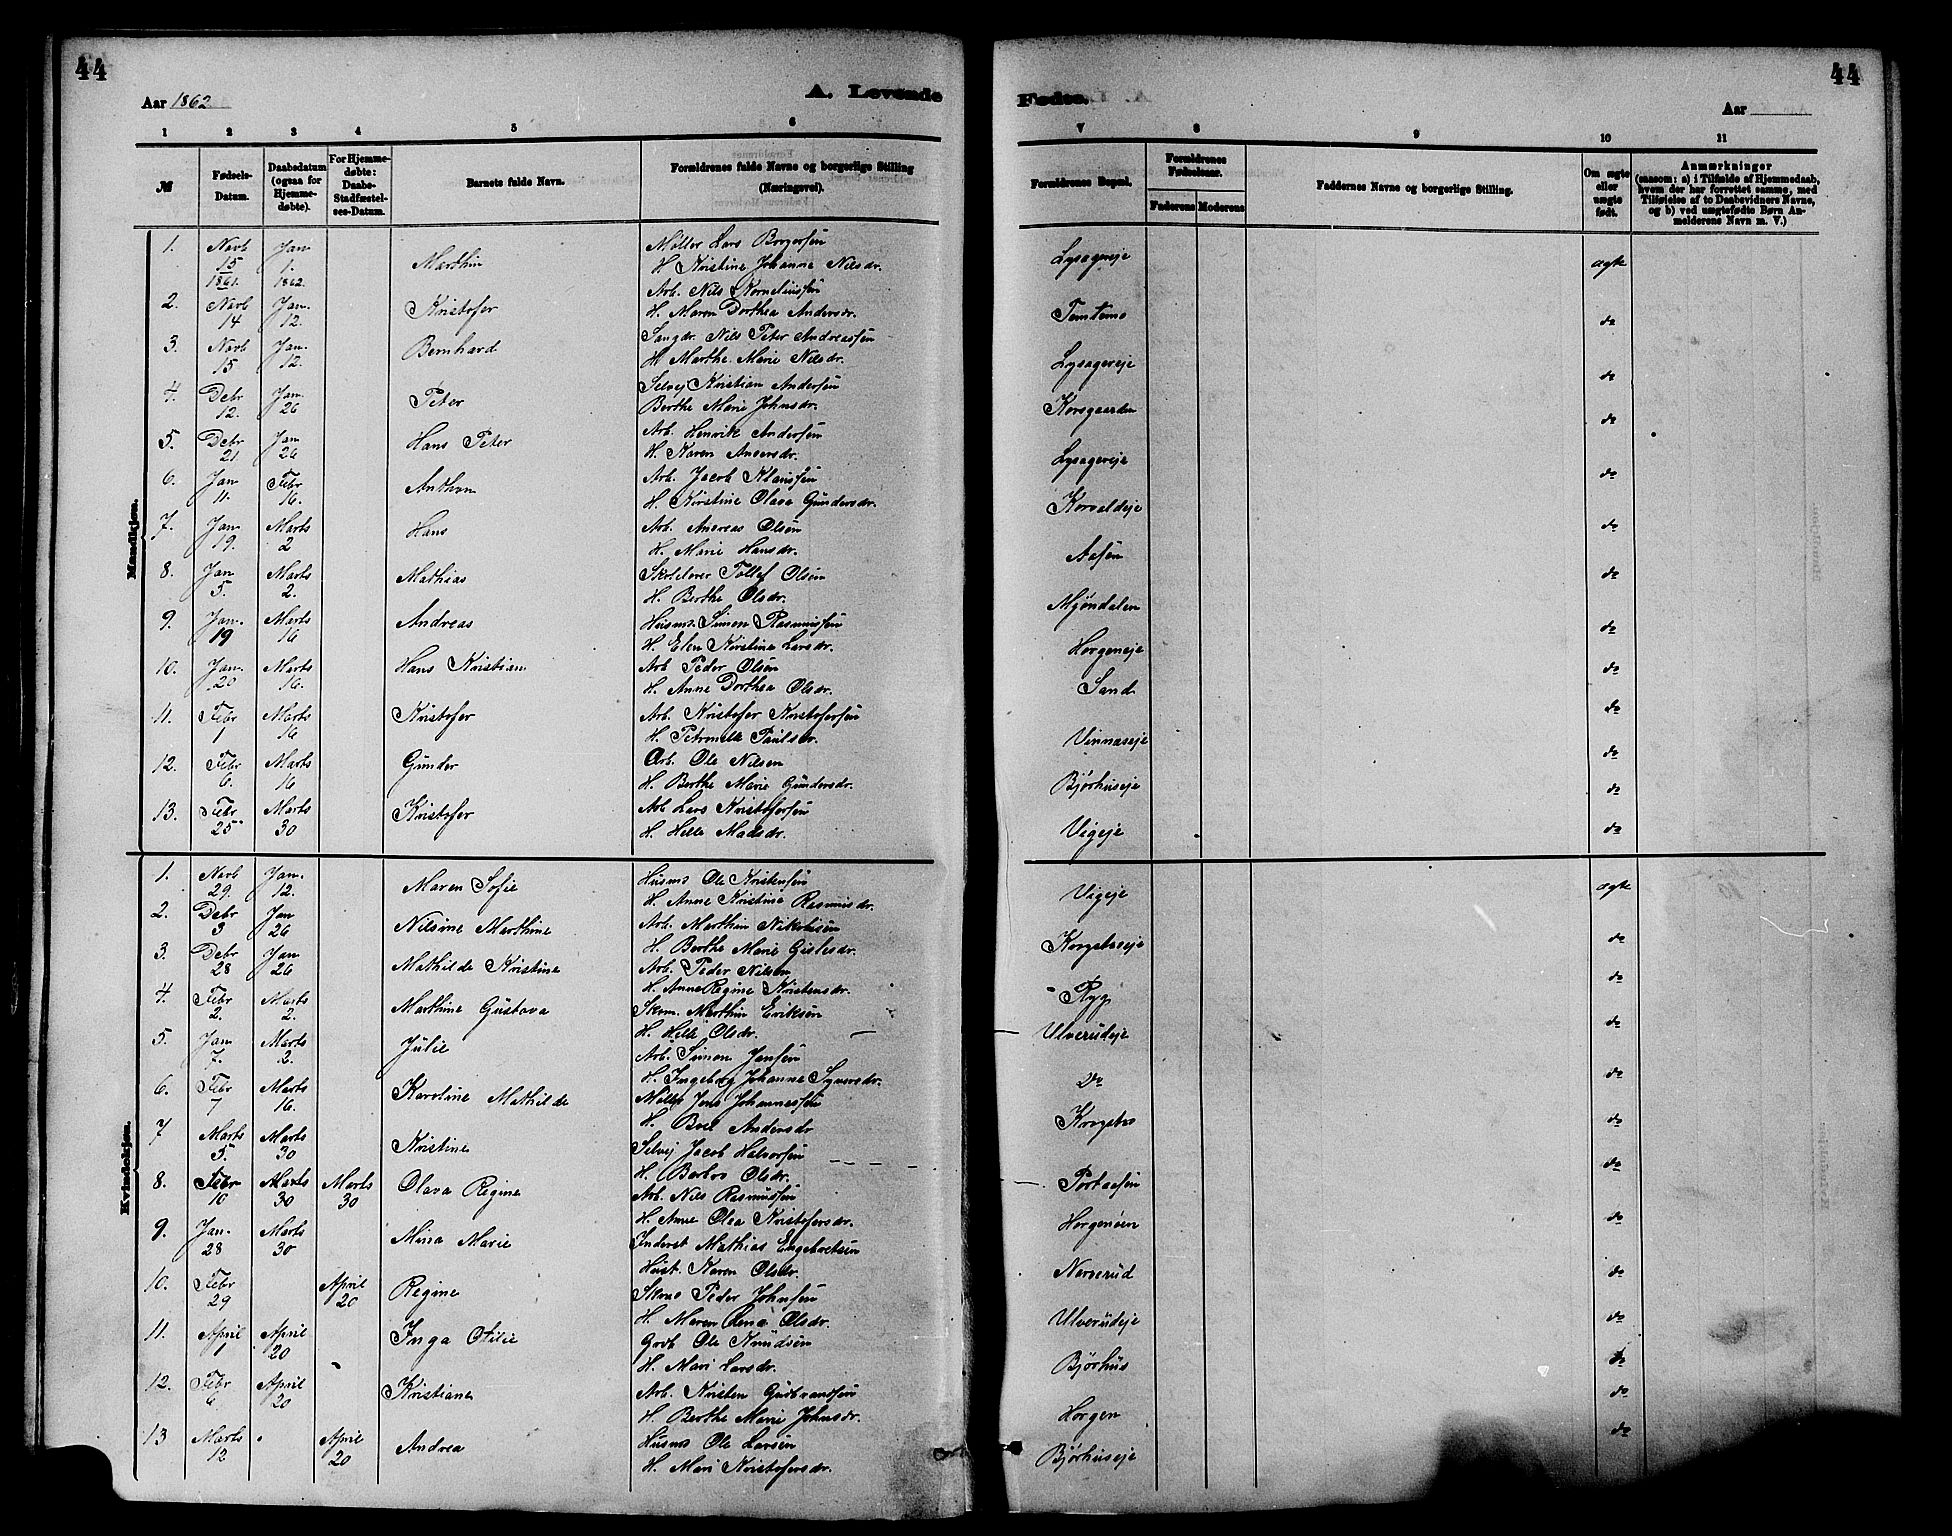 44
44
Aar 1862
A. Levende
Fødte.
Aar
1 2 3 4 5 6 7 8 9 10 11
№
Fødsels-Datum.
Daabsdatum (ogsaa for Hjemmedøbte).
For Hjemmedøbte: Daabs-Stadfæstelses-Datum.
Barnets fulde Navn.
Forældrenes fulde Navne og borgerlige Stilling (Næringsvei).
Forældrenes Bopæl.
Forældrenes Fødselsaar.
Faderens Moderens
Faddernes Navne og borgerlige Stilling.
Om ægte eller uægte født.
Anmærkninger (saasom: a) i Tilfælde af Hjemmedaab, hvem der har forrettet samme, med Tilføielse af to Daabsvidners Navne, og b) ved uægtefødte Børn Anmelderens Navn m. V.)
Mandkjøn.
1. Novb 15 1861. Jan 1. 1862. Marthin Møller Lars Borgersen Lysagereje ægte
H. Kristine Johanne Nilsdr.
2. Novb 14 Jan. 12. Kristofer Arb. Nils Korneliussen Temtemo do
H. Maren Dorthea Andersdr.
3. Novb 15 Jan. 12. Bernhard Nils Peter Andreassen Lysagereje do
H. Marthe Marie Nilsdr.
4. Debr 12. Jan. 26 Peter Selvej Kristian Andersen Korsgaarden do
Berthe Marie Johnsdr.
5. Debr 21 Jan 26 Hans Peter Arb. Henrik Andersen Lysagereje do
H. Karen Andersdr.
6. Jan 11. Febr 16. Anthon Arb. Jacob Klausen Korvaldeje do
H. Kirstine Olava Gundersdr.
7. Jan 19. Marts 2 Hans Arb. Andreas Olsen Aasen do
H. Marie Hansdr.
8. Jan 5. Marts 2. Mathias Skolelærer Tollef Olsen Mjøndalen do
H. Berthe Olsdr.
9. Jan. 19 Marts 16 Andreas Husms. Simon Rasmussen Horgeneje do
H. Elen Kirstine Larsdr.
10. Jan. 20 Marts 16. Hans Kristian Arb. Peder Olsen Sand do
H. Anne Dorthea Olsdr.
11. Febr 1 Marts 16 Kristofer Arb. Kristofer Kristofersen Vinnæseje do
H. Petronelle Paulsdr.
12. Febr 6. Marts 16 Gunder Arb. Ole Nilsen Bjørhuseje do
H. Berthe Marie Gundersdr.
13. Febr 25 Marts 30 Kristofer Arb. Lars Kristofersen Vigeje do
H. Helle Madsdr.
Kvindekjøn.
1. Novb 29. Jan. 12. Maren Sofie Husms Ole Kristensen Vigeje ægte
H. Anne Kristine Rasmusdr.
2. Debr 3 Jan 26 Nilsine Marthine Arb. Marthin Nikolaisen do
H. Berthe Marie Gislesdr.
3. Debr 28 Jan 26 Mathilde Kristine Arb. Peder Nilsen Ryg do
H. Anne Regine Kristensdr.
4. Febr 2. Marts 2. Marthine Gustava Skom. Marthin Eriksen Ulverudeje do
H. Helle Olsdr.
5. Jan 7. Marts 2. Julie Arb. Simon Jansen Do do
H. Ingeborg Johanne Syversdr.
6. Febr 7 Marts 16. Karoline Mathilde Møller Jens Johannessen do
H. Boel Andersdr
7 Marts 5. Marts 30 Kristine Selvej Jacob Halvorsen Portaasen do
H. Barbro Olsdr.
8. Febr 10 Marts 30 Marts 30 Olava Regine Arb. Nils Rasmussen Horgenøen do
H. Anne Olea Kristofersdr.
9. Jan. 28 Marts 30 Mina Marie Inderst Mathias Engebretsen Narverud do
Hust. Karen Olsdr.
10. Febr 29 April 20 Regine Peder Johnsen Ulverudeje do
H. Maren Lena Olsdr.
11. April 1 April 20 Inga Otilie Grdb Ole Knudsen Bjørhus do
H. Mari Larsdr.
12. Febr 6 April 20 Kristiane Arb. Kristen Gudbrandsen Horgen do
H. Berthe Marie Johnsdr.
13 Marts 12 April 20 Andrea Husms Ole Larsen Bjørhuseje do
H. Mari Kristofersdr.